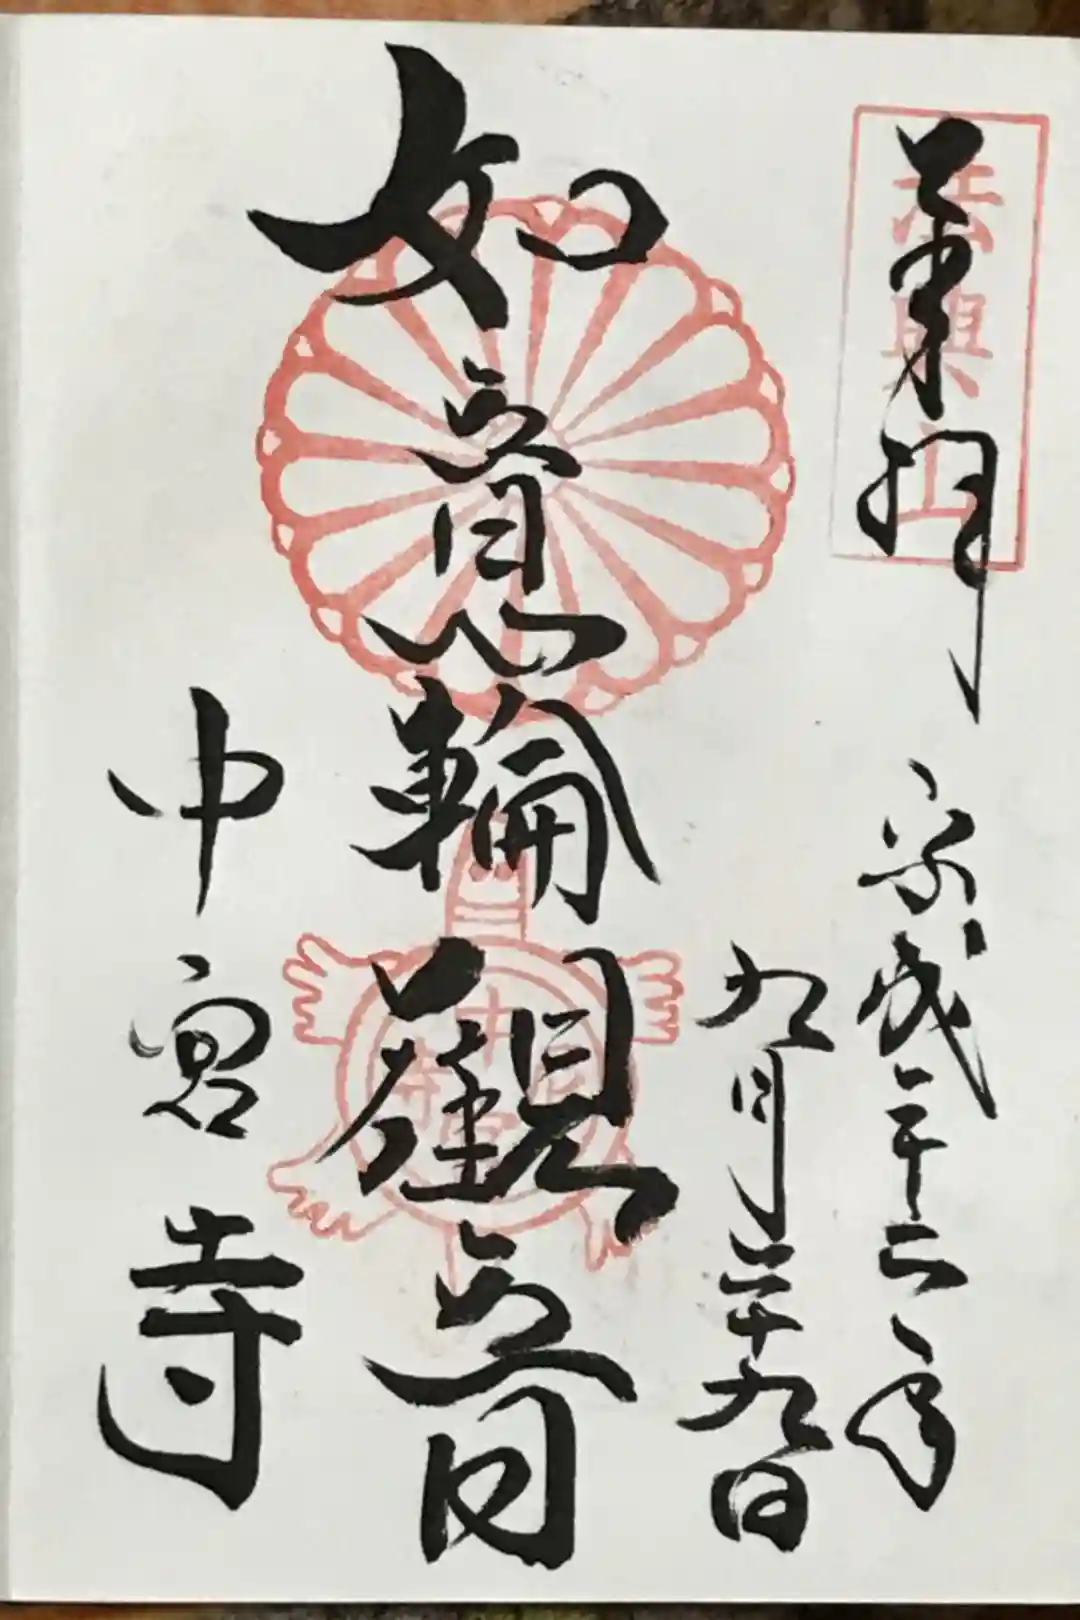 奉拝
法興山
平成二十二年
九月二十九日
如意輪觀音
中宮寺